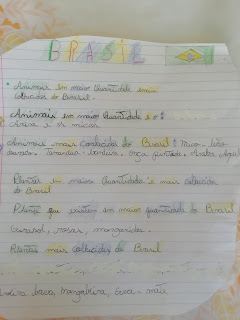 BRASIL
• Animais em maior Quantidade e mais
conhecidos do Brasil.
Animais em maior Quantidade é o:
Arara e os micos.
Animais mais Conhecidos do Brasil: Mico-leão
dourado. Tamanduá-bandeira, Onça pintada, Arara Azul
Plantas em maior Quantidades e mais conhecida
do Brasil
Plantas que existem em maior quantidade do Brasil
Girassol, rosas, margaridas.
Plantas mais conhecidas do Brasil
brava, Mangabeira, Erva-mate